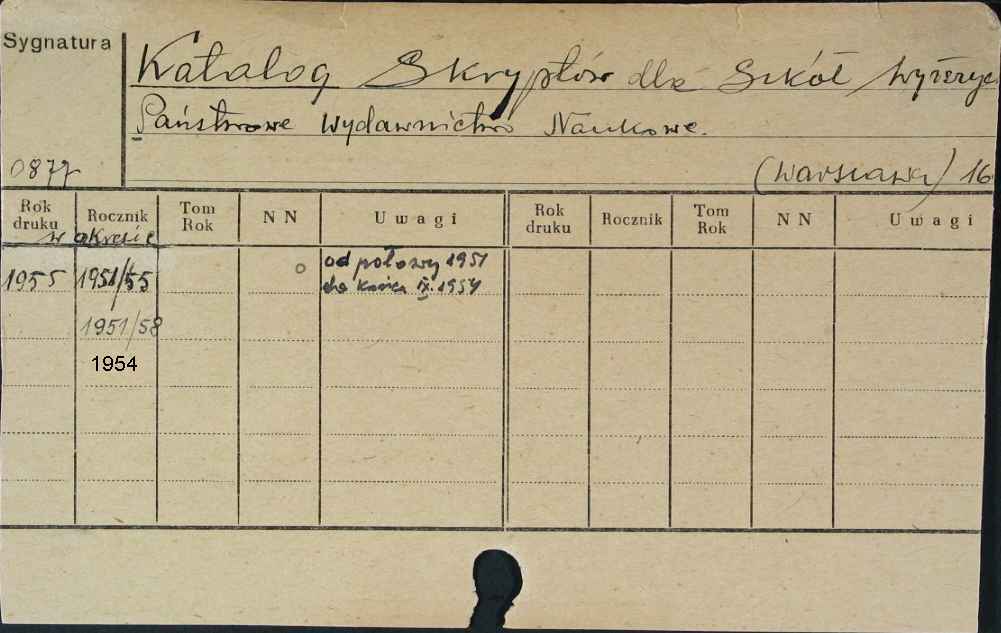 Sygnatura
Katalog Skryptów dla Szkół Wyższyc
Państwowe Wydawnictwo Naukowe.
0877
(Warszawa) 16
Rok druku Rocznik Tom Rok N N U w a g i Rok druku Rocznik Tom Rok N N U w a g i
w okresie
1955 1951/55 o od połowy 1951
do końca IX. 1954
1951/58
1954